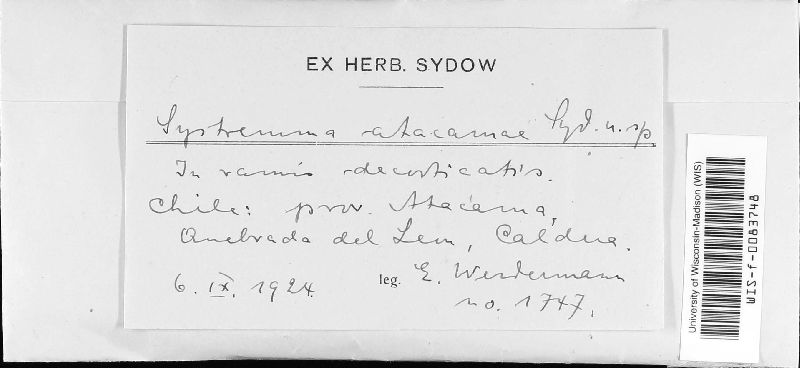 EX HERB. SYDOW
Systremma atacamae Syd. n. sp
In ramis decorticatis.
Chile: prov. Atacama,
Quebrada del Leon, Caldera.
6. IX. 1924. leg. E. Werdermann
no. 1747.
University of Wisconsin-Madison (WIS)
WIS-f-0083748